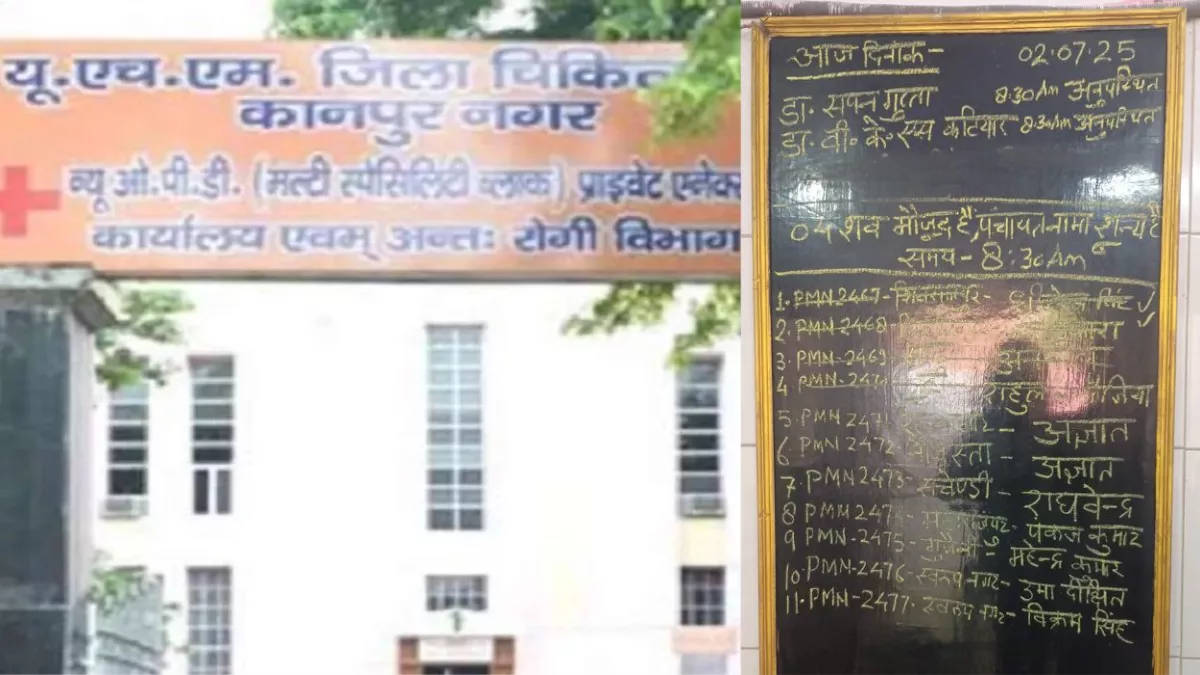 यू.एच.एम. जिला
कानपुर नगर
न्यू ओ.पी.डी. (मल्टी स्पेसिलिटी ब्लाक), प्राइवेट
कार्यालय एवम् अन्तः रोगी विभाग
आज दिनांक - 02.07.25
डा. सपन गुप्ता 8:30 Am अनुपस्थित
डा. वी. के. एस कटियार 8:30 Am अनुपस्थित
04 शव मौजूद हैं, पंचायतनामा शून्य है
समय - 8:30 Am
1. PMN-2467- सिंह ✓
2. PMN-2468-
3. PMN-2469-
4 राहुल
5. PMN 2471 - अज्ञात
6. PMN 2472 - अज्ञात
7. PMN-2473- सचेण्डी - राघवेन्द्र
8 पंकज कुमार
9 PMN-2475- गुजैनी - महेन्द्र कुमार
10. PMN-2476- स्वरूप नगर - उमा दीक्षित
11. PMN-2477- स्वरूप नगर - विक्रम सिंह